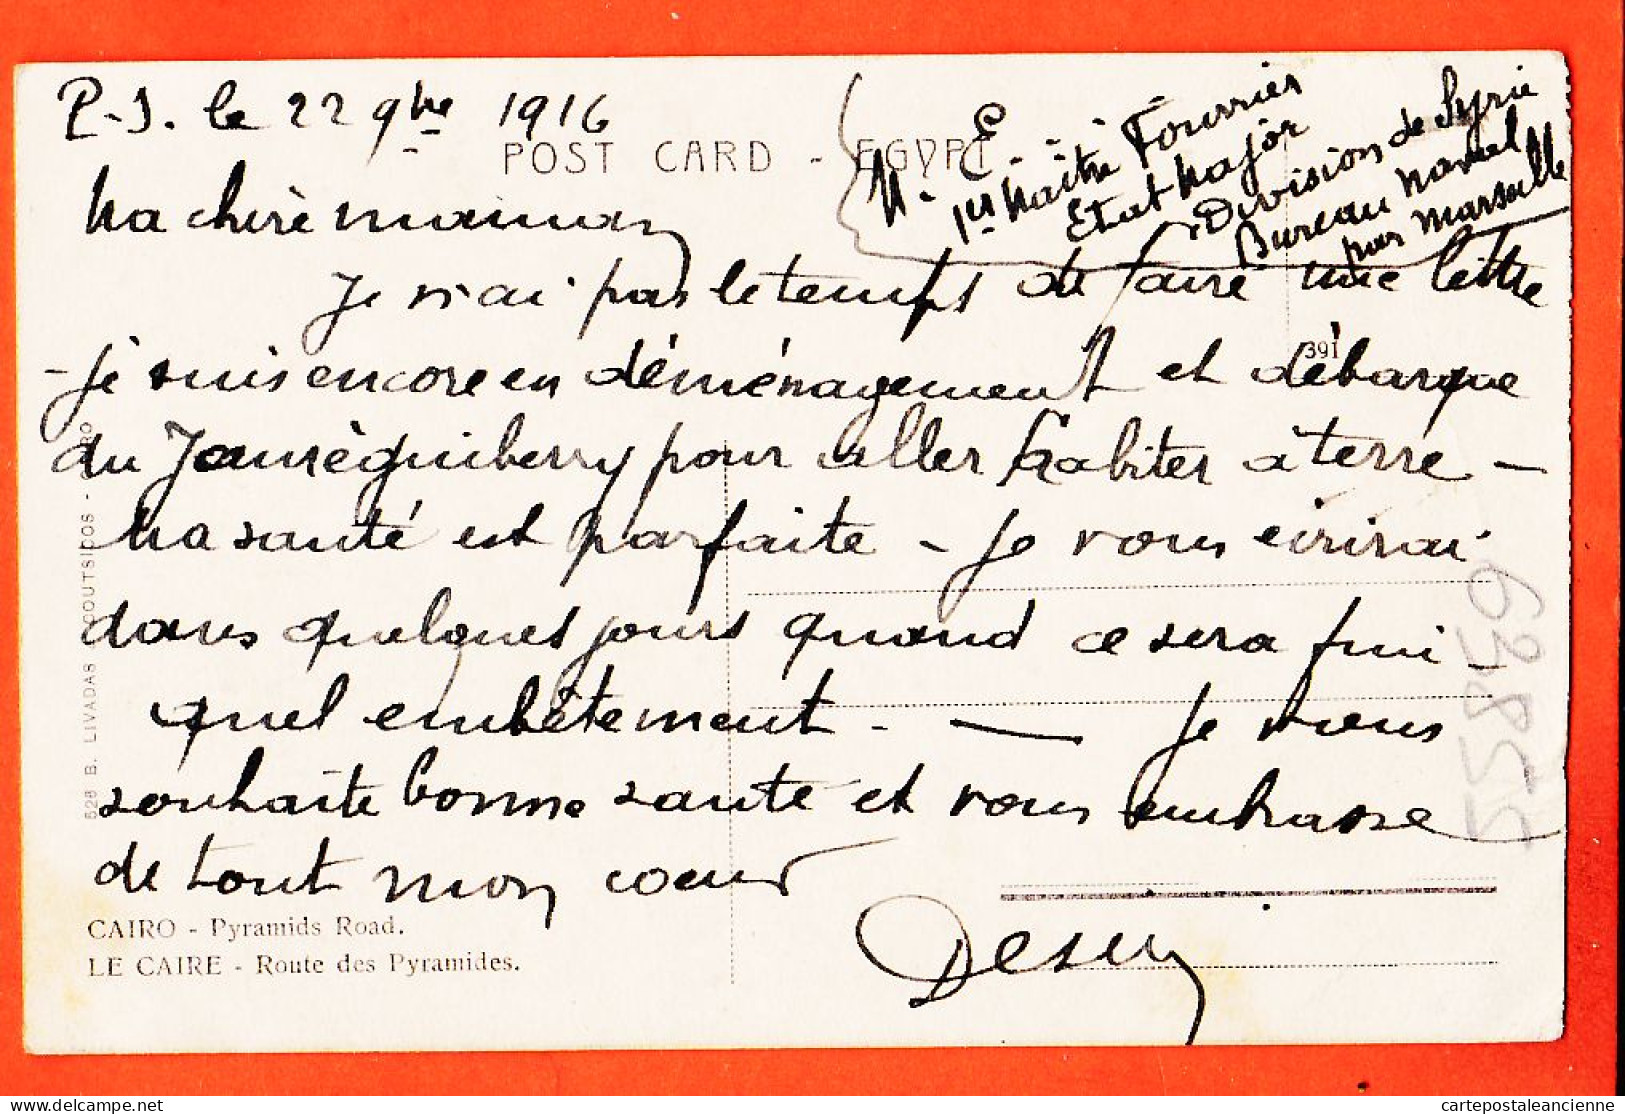 P-S. le 22 9bre 1916
POST CARD - EGYPT
M. E.
1er Maître Fourrier
Etat Major
Division de Syrie
Bureau Naval
par Marseille
Ma chère maman
Je n'ai pas le temps de faire une lettre
- Je suis encore en déménagement et débarque
391
du Jauréguiberry pour aller habiter à terre -
Ma santé est parfaite - Je vous écrirai
dans quelques jours quand ce sera fini -
quel embêtement - — Je vous
souhaite bonne santé et vous embrasse
de tout mon cœur
CAIRO - Pyramids Road.
LE CAIRE - Route des Pyramides.
B. LIVADAS
55859
delcampe.net
cartepostaleancienne